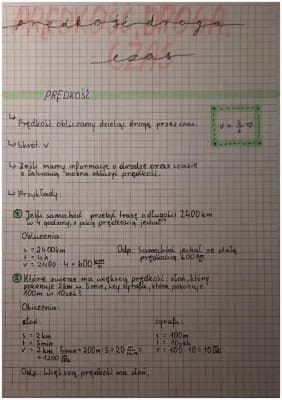 PRĘDKOŚĆ DROGA
prędkość droga
CZAS
czas
PRĘDKOŚĆ
↳ Prędkość obliczamy dzieląc drogę przez czas.
v = s/t
↳ Skrót: V
↳ Jeśli mamy informacje o drodze oraz czasie
z łatwością można obliczyć prędkość.
↳ Przykłady:
1 Jeśli samochód przebył trasę o długości 2400 km
w 4 godziny, z jaką prędkością jechał?
Obliczenia:
s = 2400km
t = 4h
v = 2400 : 4 = 600 km/h
Odp.: Samochód jechał ze stałą
prędkością 600 km/h
2 Które zwierzę ma większą prędkość: słoń, który
pokonuje 2km w 5min, czy żyrafa, która pokonuje
100m w 10sek?
Obliczenia:
słoń
s = 2km
t = 5min
v = 2km : 5min = 200m : 5 = 20
= 1200
żyrafa:
s = 100m
t = 10sek
v = 100 : 10 = 10
Odp.: Większą prędkość ma słoń.